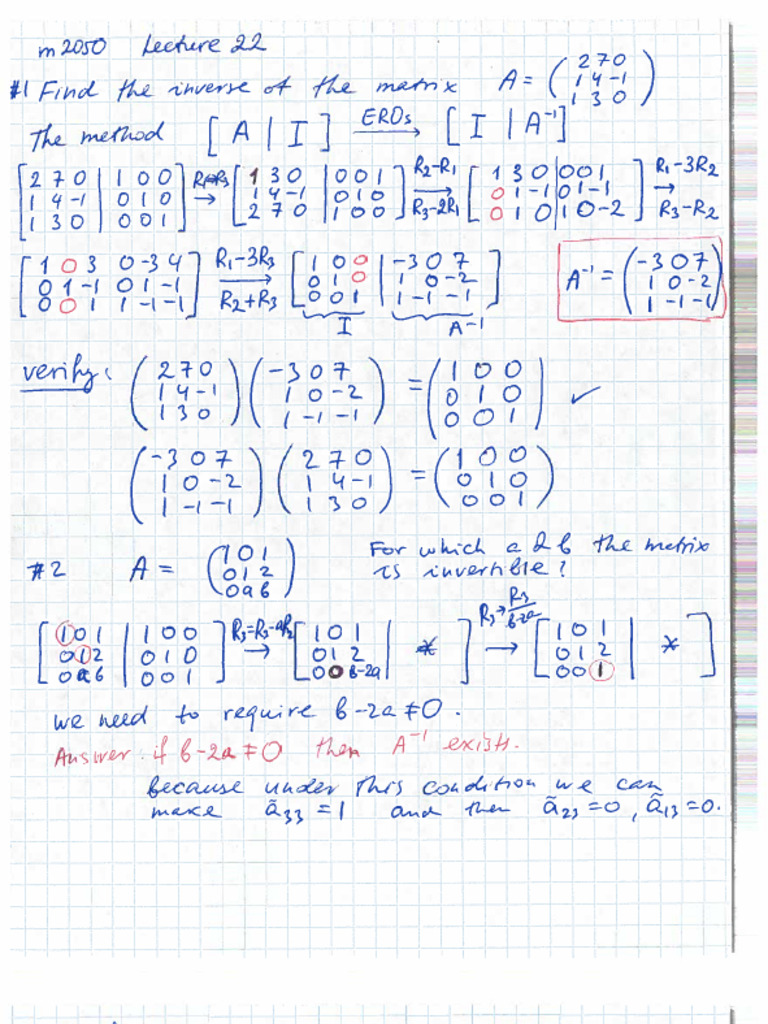 m2050 Lecture 22
#1 Find the inverse of the matrix A = (2 7 0 / 1 4 -1 / 1 3 0)
The method [A | I] EROs → [I | A⁻¹]
[2 7 0 | 1 0 0 / 1 4 -1 | 0 1 0 / 1 3 0 | 0 0 1] R1↔R3 → [1 3 0 | 0 0 1 / 1 4 -1 | 0 1 0 / 2 7 0 | 1 0 0] R2-R1 → R3-2R1 [1 3 0 | 0 0 1 / 0 1 -1 | 0 1 -1 / 0 1 0 | 1 0 -2] R1-3R2 → R3-R2
[1 0 3 0 -3 4 / 0 1 -1 0 1 -1 / 0 0 1 1 -1 -1] R1-3R3 → R2+R3 [1 0 0 | -3 0 7 / 0 1 0 | 1 0 -2 / 0 0 1 | 1 -1 -1] A⁻¹ = (-3 0 7 / 1 0 -2 / 1 -1 -1)
I A⁻¹
verify: (2 7 0 / 1 4 -1 / 1 3 0) (-3 0 7 / 1 0 -2 / 1 -1 -1) = (1 0 0 / 0 1 0 / 0 0 1) ✓
(-3 0 7 / 1 0 -2 / 1 -1 -1) (2 7 0 / 1 4 -1 / 1 3 0) = (1 0 0 / 0 1 0 / 0 0 1)
#2 A = (1 0 1 / 0 1 2 / 0 a b) For which a & b the matrix
is invertible?
[1 0 1 | 1 0 0 / 0 1 2 | 0 1 0 / 0 a b | 0 0 1] R3=R3-aR2 → [1 0 1 | / 0 1 2 | * / 0 0 b-2a |] R3→R3/b-2a → [1 0 1 | / 0 1 2 | * / 0 0 1 |]
we need to require b-2a≠0.
Answer: if b-2a≠0 then A⁻¹ exists.
because under this condition we can
make ã₃₃=1 and then ã₂₃=0, ã₁₃=0.